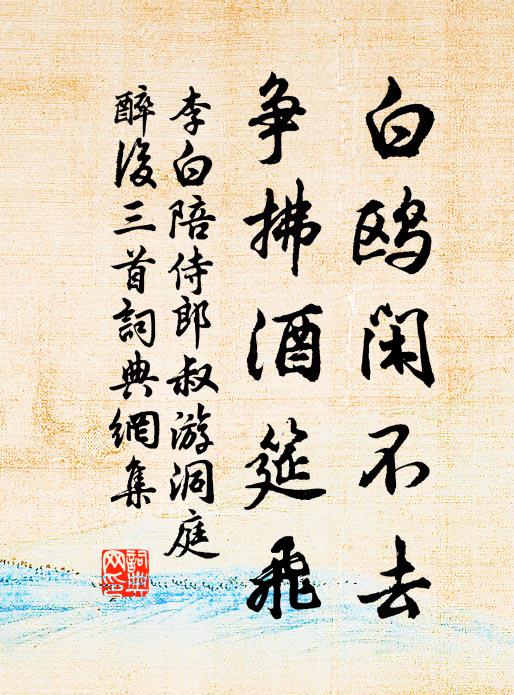 白鸥闲不去
争拂酒筵飞
李白陪侍郎叔游洞庭
醉後三首詞典網集